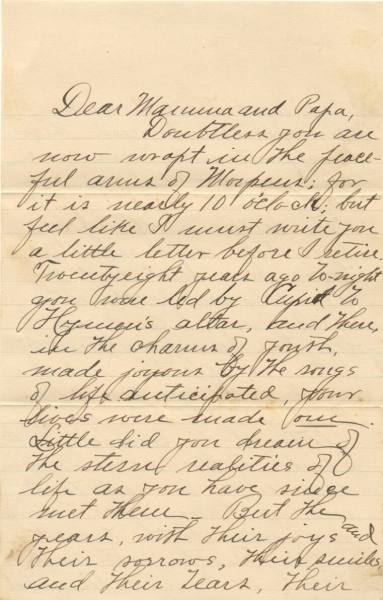 Dear Mamma and Papa,
Doubtless you are
now wrapt in the peace-
ful arms of Morpeus; for
it is nearly 10 o'clock; but
feel like I must write you
a little letter before I retire.
Twenty eight years ago to-night
you were led by Cupid to
Hymen's altar, and there,
in the charms of youth,
made joyous by the songs
of life anticipated, your
lives were made one.
Little did you dream of
the stern realities of
life as you have since
met them. But the
years, with their joys and
their sorrows, their smiles
and their tears, their